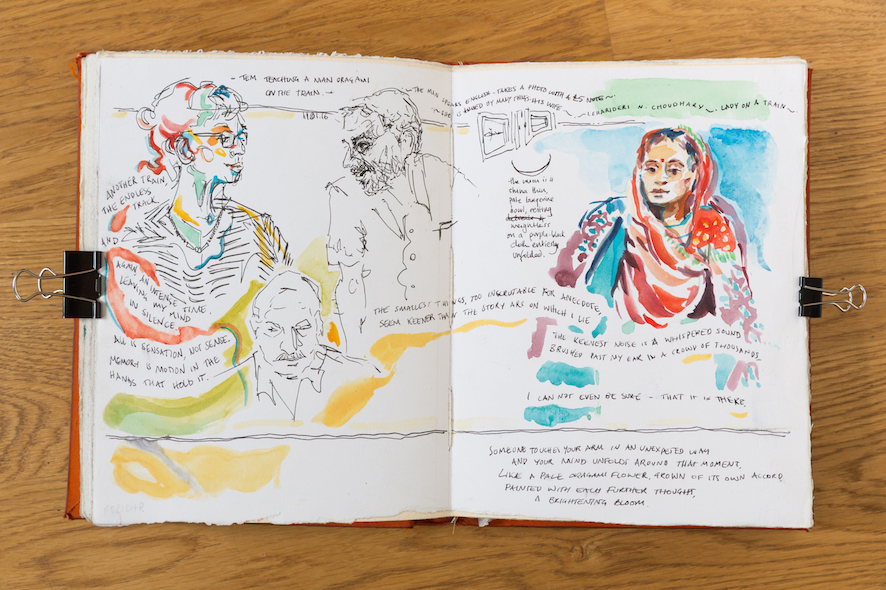 - TEM TEACHING A MAN ORAGAMI
ON THE TRAIN. →
- THE MAN SPEAKS ENGLISH - TAKES A PHOTO WITH A £5 NOTE ~
IS AMUSED BY MANY THINGS - HIS WIFE
N. CHOUDHARY ~ LADY ON A TRAIN ~
ANOTHER TRAIN,
THE ENDLESS
TRACK
AND
AGAIN, AN INTENSE TIME
LEAVING MY MIND
IN SILENCE.
ALL IS SENSATION, NOT SENSE.
MEMORY IS MOTION IN THE
HANDS THAT HOLD IT.
the moon is a
china thin,
pale tangerine
bowl, resting
weightless
on a purple-black
cloth entirely
unfolded.
THE SMALLEST THINGS, TOO INSCRUTABLE FOR ANECDOTE,
SEEM KEENER THAN THE STORY ARC ON WHICH I LIE
THE KEENEST NOISE IS A WHISPERED SOUND
BRUSHED PAST MY EAR IN A CROWD OF THOUSANDS
I CAN NOT EVEN BE SURE - THAT IT IS THERE.
SOMEONE TOUCHES YOUR ARM IN AN UNEXPECTED WAY
AND YOUR MIND UNFOLDS AROUND THAT MOMENT,
LIKE A PALE ORAGAMI FLOWER, GROWN OF ITS OWN ACCORD
PAINTED WITH EACH FURTHER THOUGHT,
A BRIGHTENING BLOOM